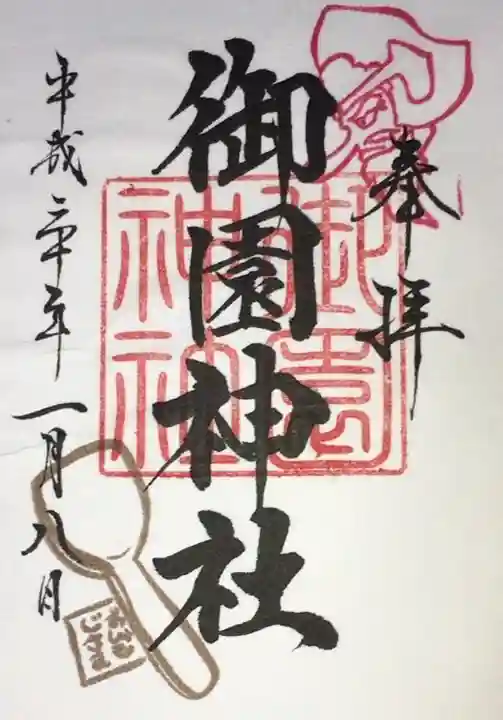 奉拝
御園神社
御園
神社
平成三十年一月八日
おしゃも
じさま